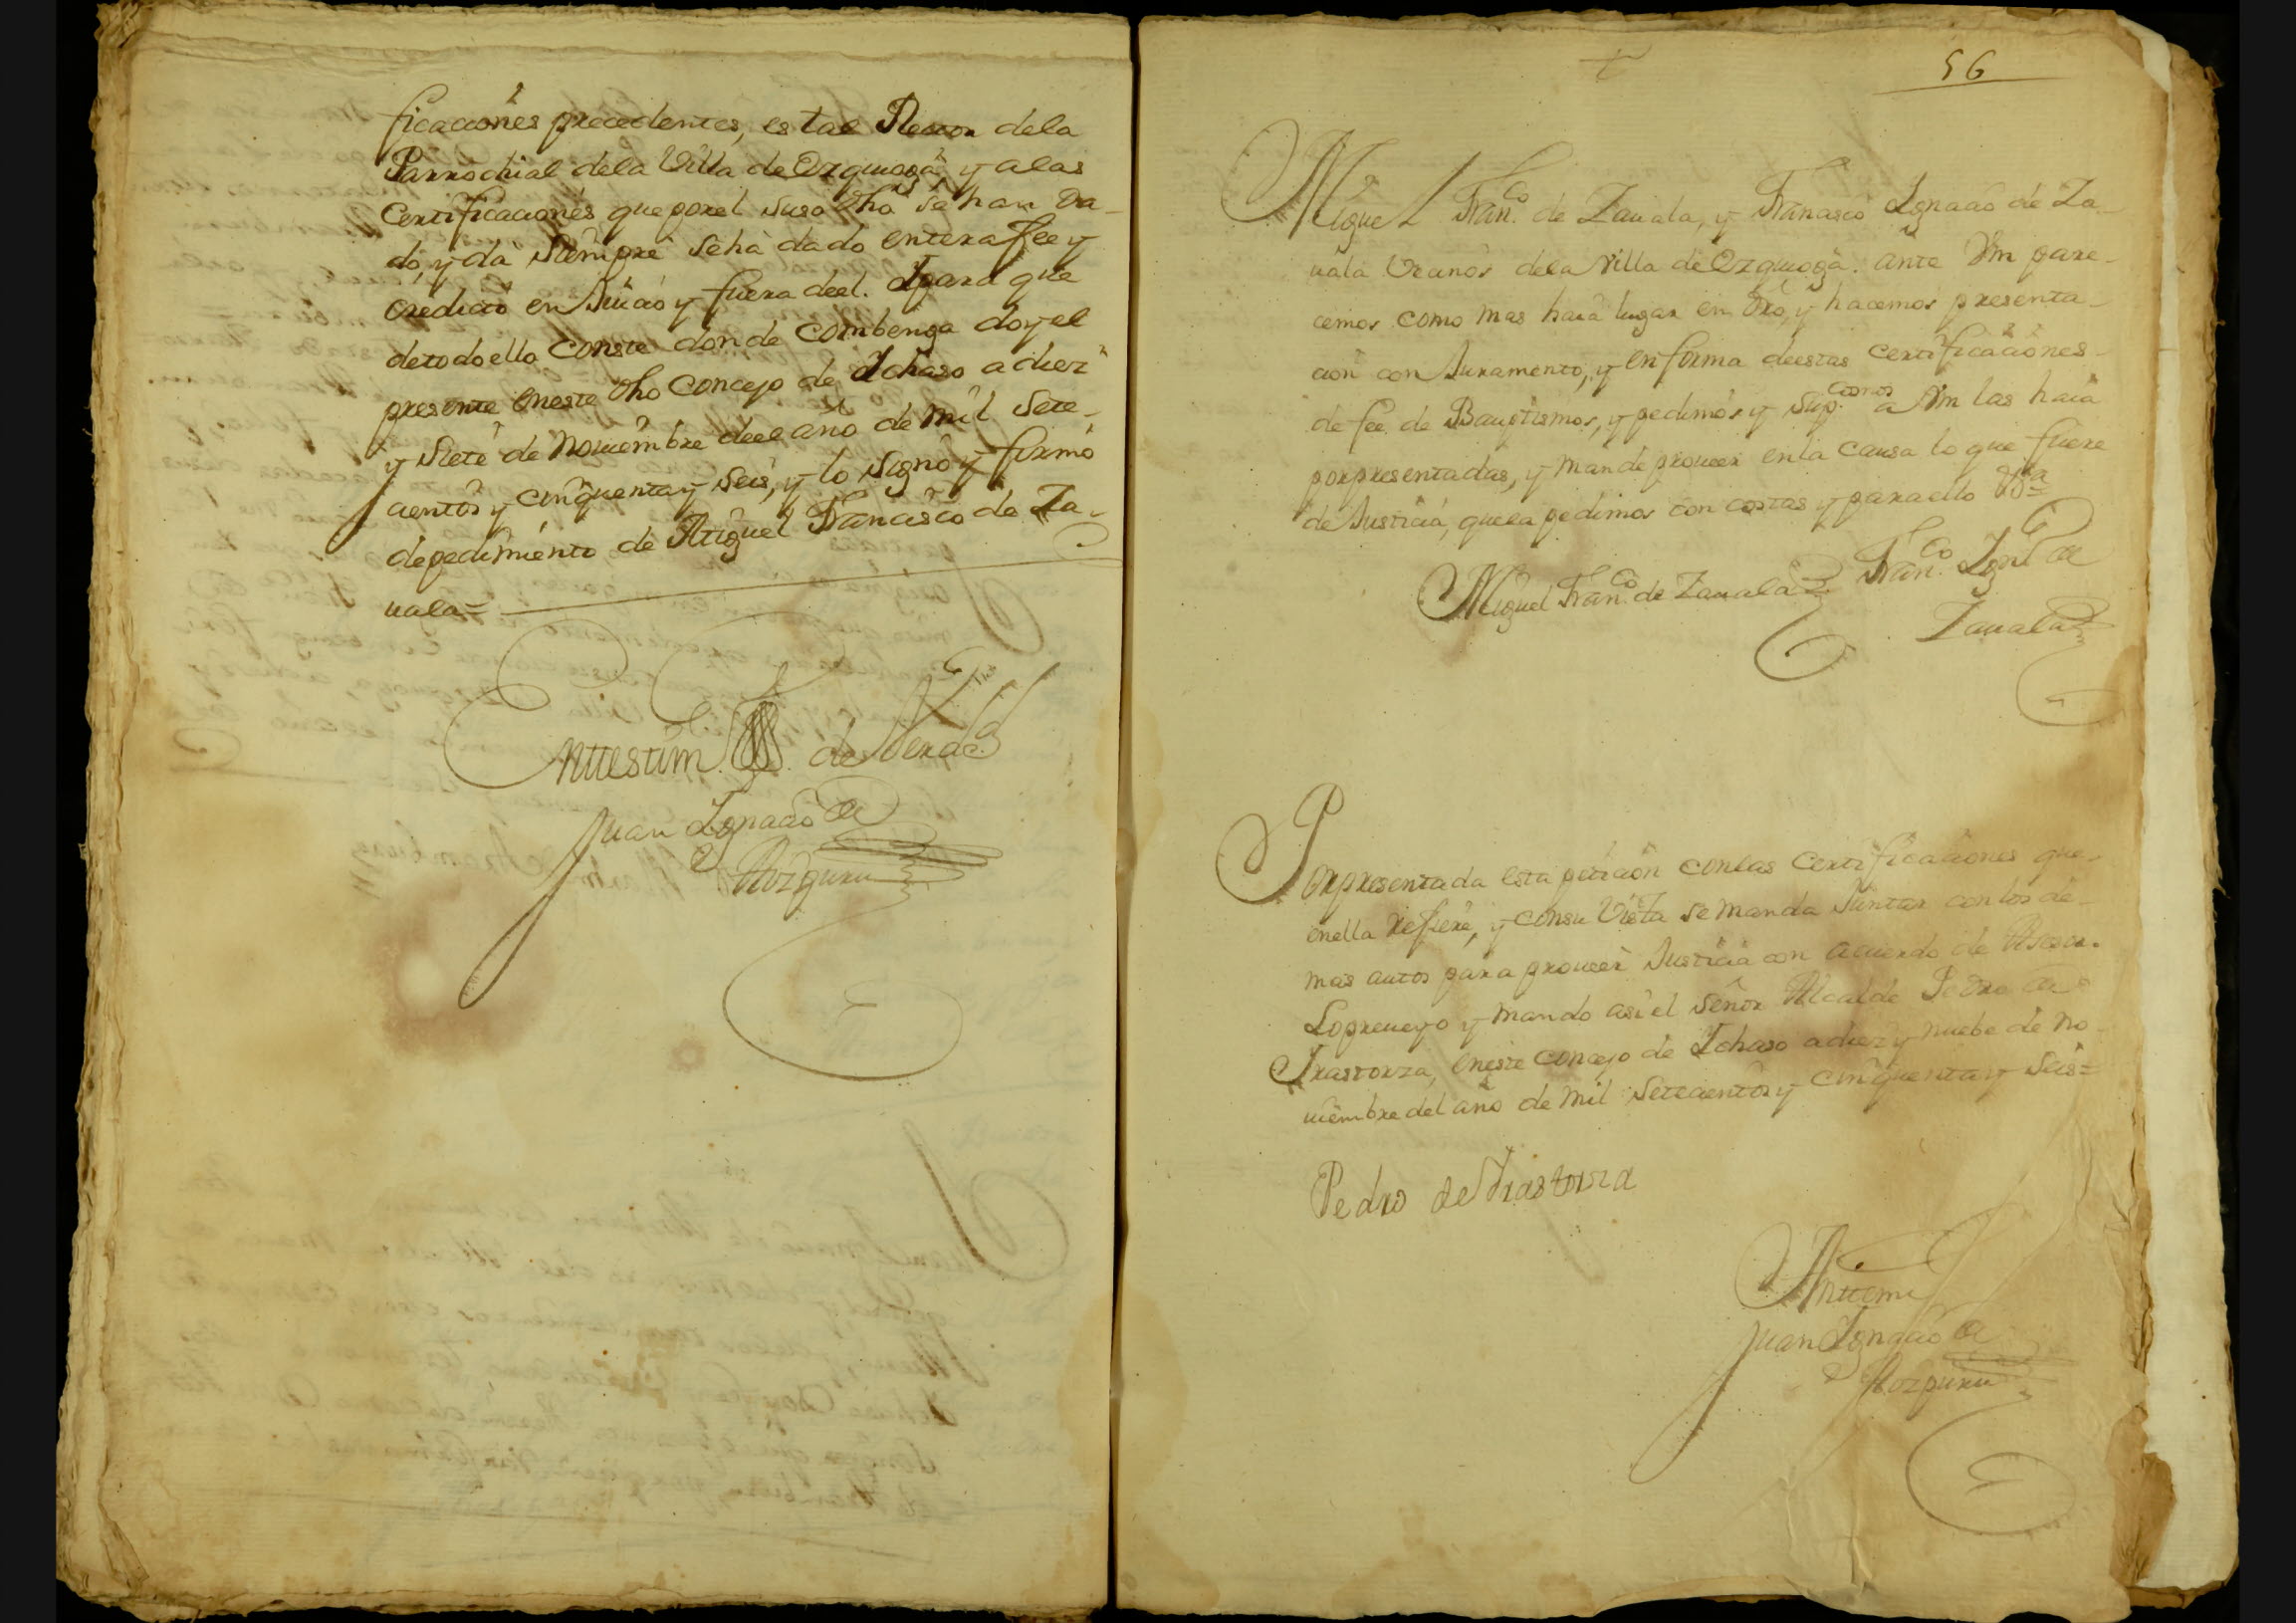 ficaciones precedentes, es tal Rector dela
Parrochial dela Villa de Ozquaga y alas
Certificaciones que porel suso dho se han da-
do, y dà siempre sehà dado entera fee y
credicto en Juicio y fuera deel. Ipara que
detodoello conste donde combenga doy el
presente eneste dho Concejo de Ichaso a diez
y siete de Noviembre deel año de mil sete-
cientos y cinquentay seis, y lo signo y firmo
depedimiento de Miguel Francisco de Za-
uala=
Enttestim.º de Verdad
Juan Ignacio de
Aozpuru
56
Miguel Fran.co de Zauala, y Francisco Ignacio de Za-
uala Vecinos dela Villa de Ozquaga. ante Vm pare-
cemos como mas haia lugar en dro, y hacemos presenta-
cion con Juramento, y enforma deestas certificaciones
de fee de Bauptismos, y pedimos y sup.camos a Vm las haia
porpresentadas, y mande proueer enla causa lo que fuere
de Justicia, quela pedimos con costas y paraello &a
Miguel Fran.co de Zauala Fran.co Ign.o de
Zauala
Porpresentada esta peticion conlas Certificaciones que
enella refiere, y consu Vista se manda Juntar con los de-
mas autos para proueer Justicia con acuerdo de Asesor.
Loproueyo y mando asi el señor Alcalde Pedro de
Irastorza, eneste concejo de Ichaso adiez y nuebe de No-
uiembre del año de mil setecientos y cinquentay seis=
Pedro de Irastorza
Anttemi
Juan Ignacio de
Aozpuru